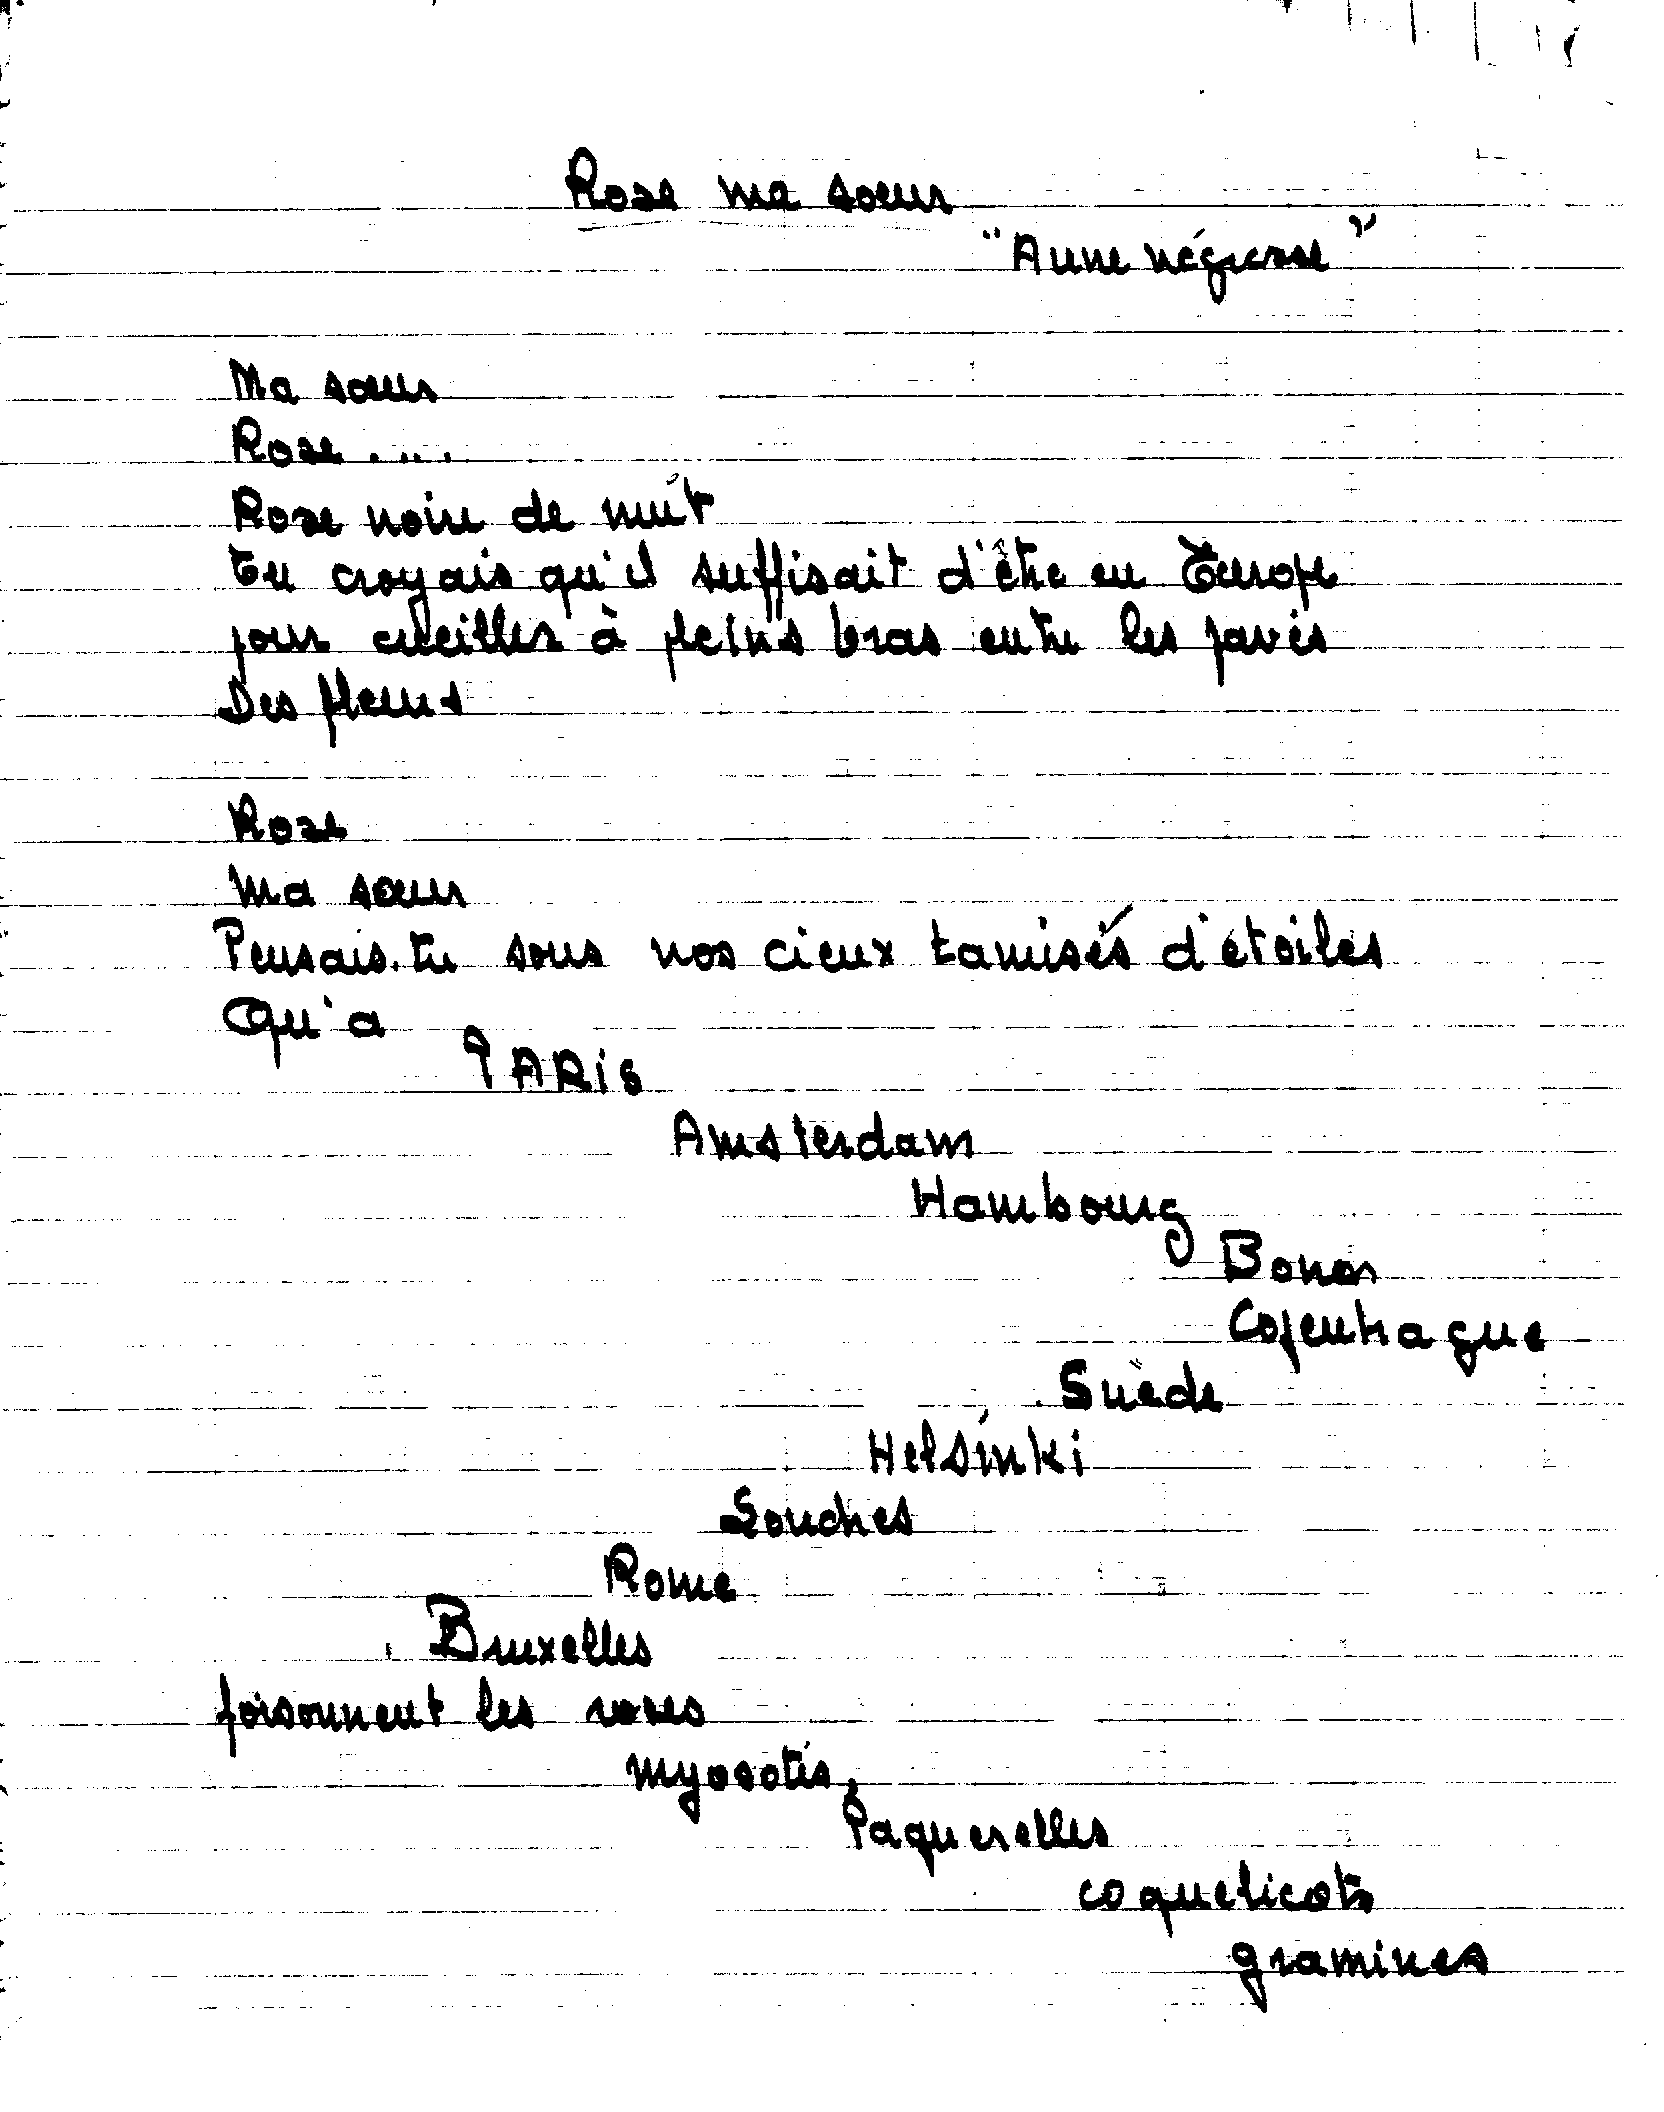 Rose ma soeur
"A une négresse"
Ma soeur
Rose.....
Rose noire de nuit
Tu croyais qu'il suffisait d'être en Europe
pour cueillir à pleins bras entre les pavés
Des fleurs
Rose
Ma soeur
Pensais-tu sous nos cieux tamisés d'étoiles
Qu'a
PARis
Amsterdam
Hambourg
Bonn
Copenhague
Suède
Helsinki
Londres
Rome
Bruxelles
foisonnent les roses
myosotis,
Paquerelles
coquelicots
gramines